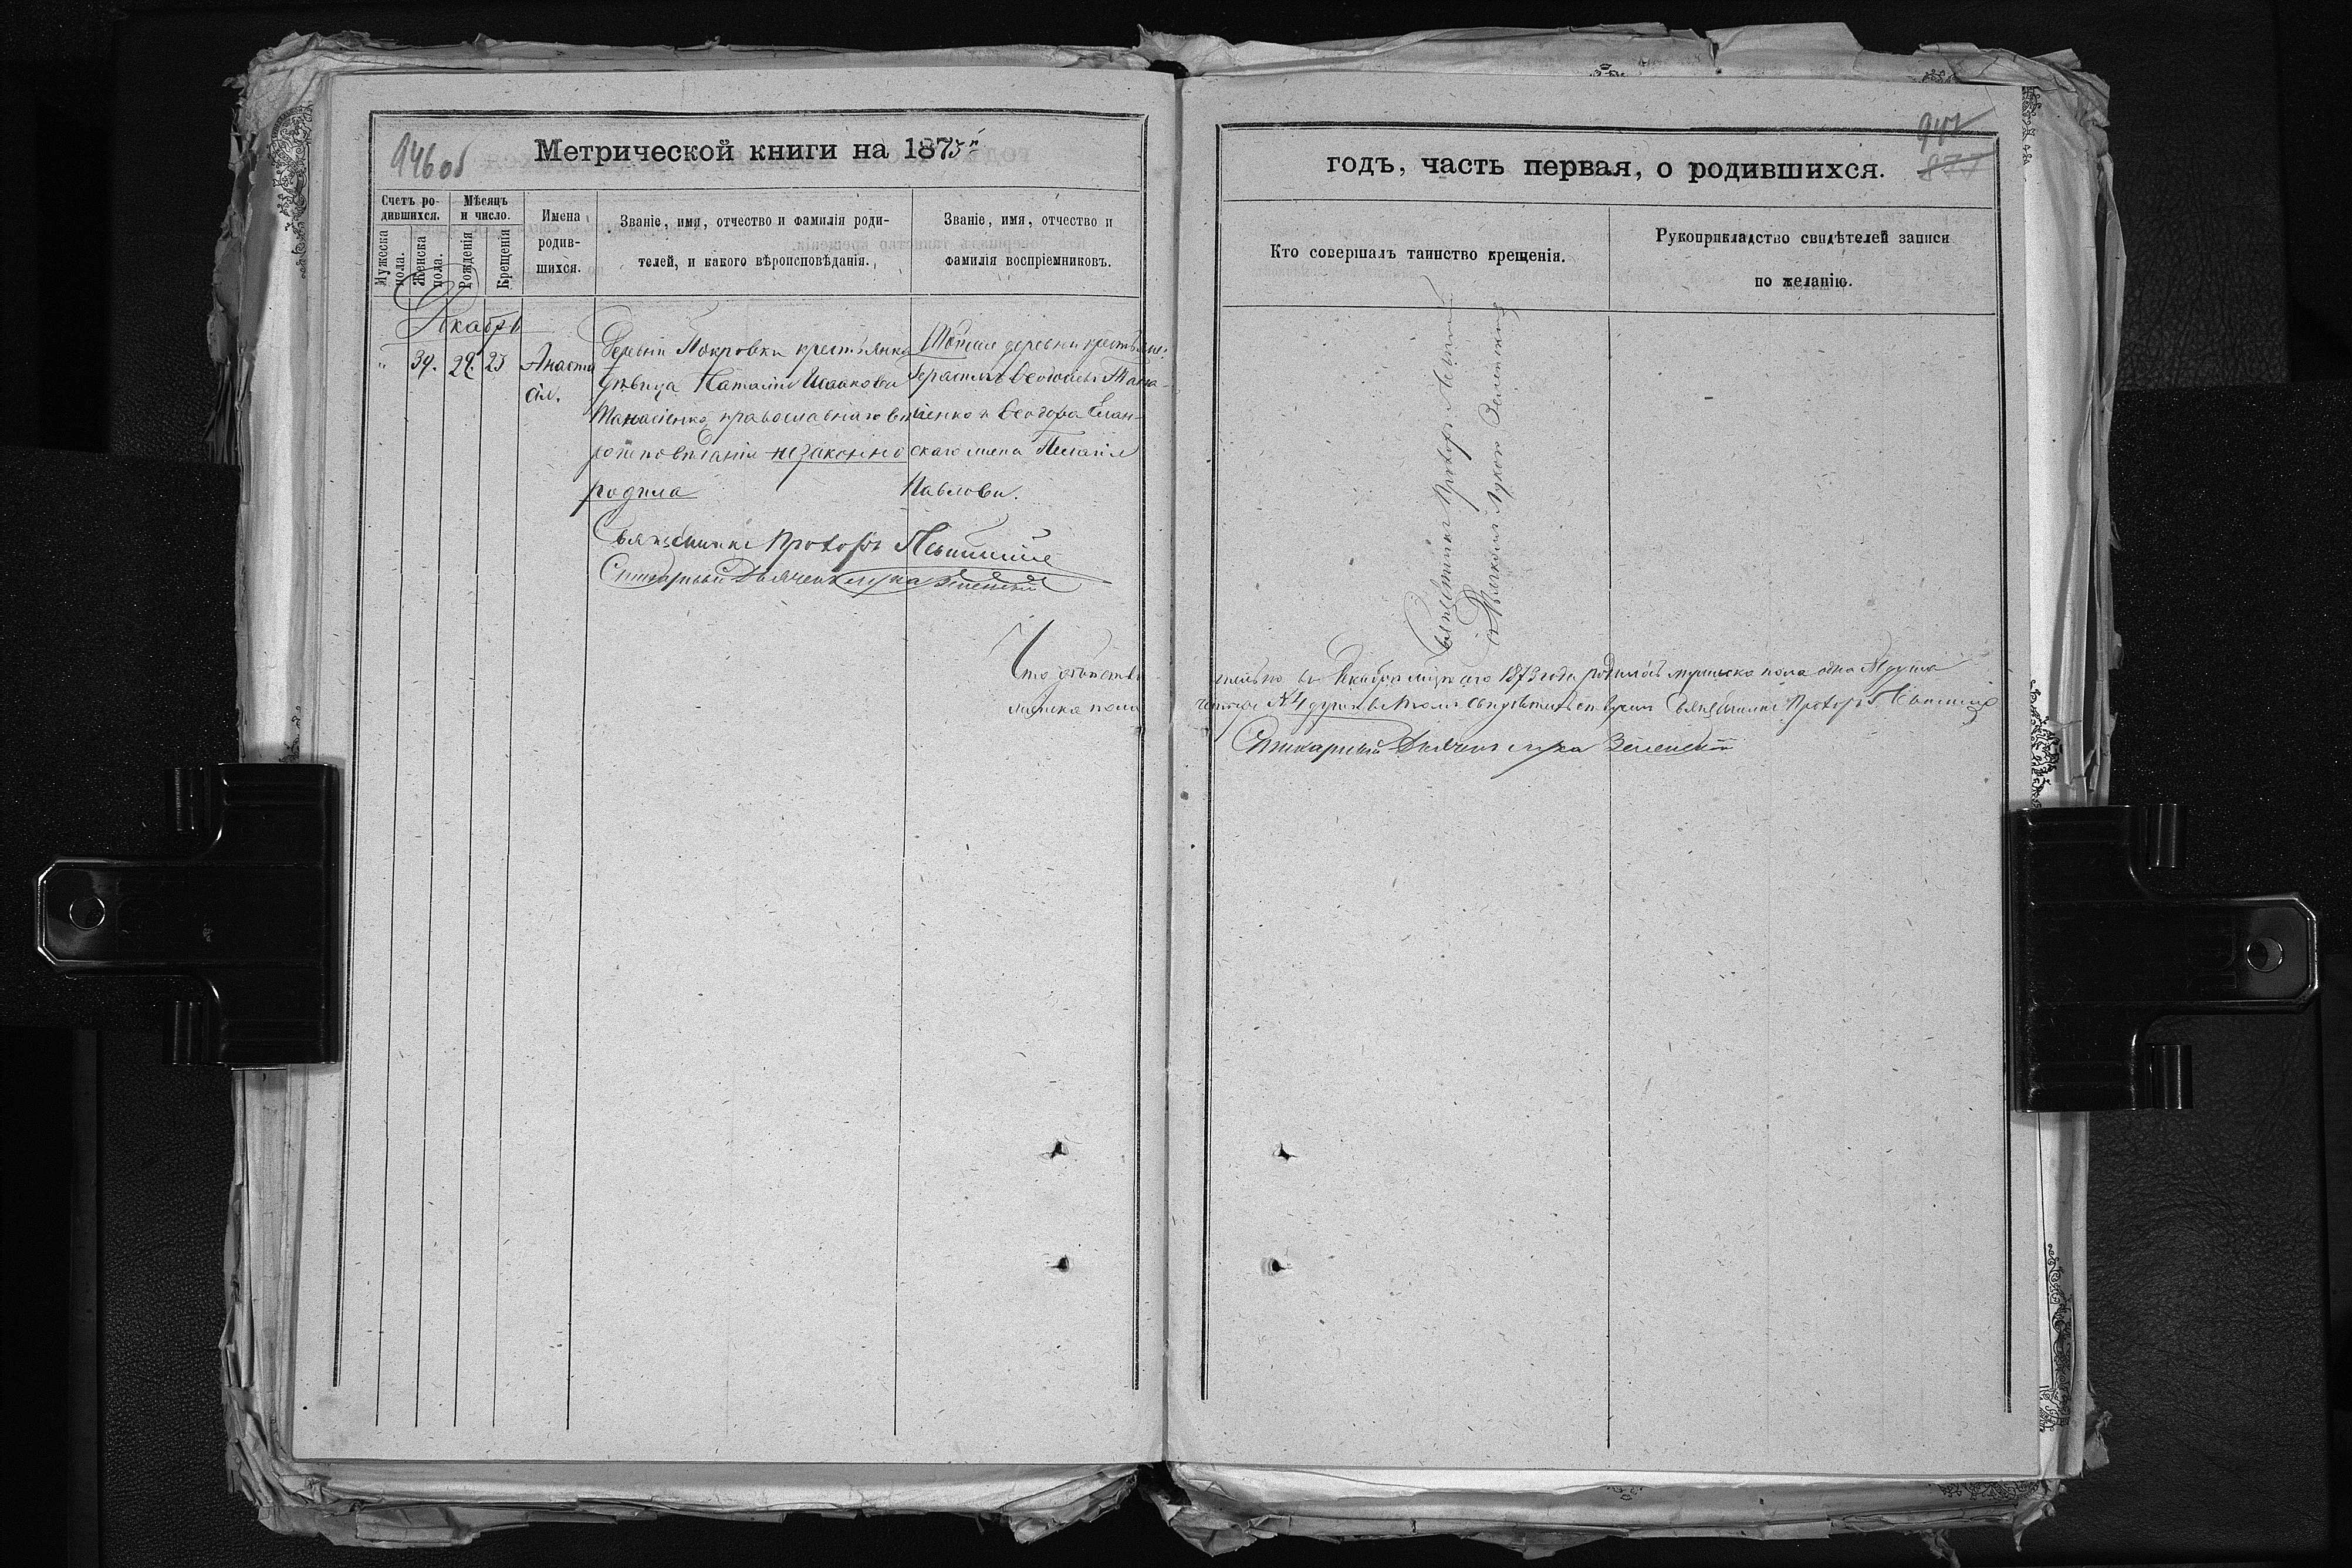 946 об
Метрической книги на 1875й
Счетъ ро-
дившихся.
Мужеска
пола.
Женска
пола.
Мѣсяцъ
и число.
Рожденія
Крещенія
Имена
родив-
шихся.
Званіе, имя, отчество и фамилія роди-
телей, и какого вѣроисповѣданія.
Званіе, имя, отчество и
фамилія воспріемниковъ.
Декабрь
" 39. 22. 25
Анаста
сія.
Деревни Покровки крестьянка
дѣвица Наталія Исаакова
православнаго вѣ
роисповѣданія незаконно
родила
Тойже деревни
Герасимъ Ѳеодоровъ
и Ѳеодора
жена Пелагія
Павлова.
Священникъ Прохоръ
Стихарный Дьячекъ Лука Зеленскій
Что дѣйстви
женска пола
годъ, часть первая, о родившихся.
947
877
Кто совершалъ таинство крещенія.
Рукоприкладство свидѣтелей записи
по желанію.
Священникъ Прохоръ
съ Дьячкомъ Лукою Зеленскимъ
тельно въ Декабрѣ мѣсяцѣ сего 1875 года родилось мужеска пола одна №1 душа
четыре №4 души въ томъ свидѣтельствуемъ Священникъ Прохоръ
Стихарный Дьячекъ Лука Зеленскій